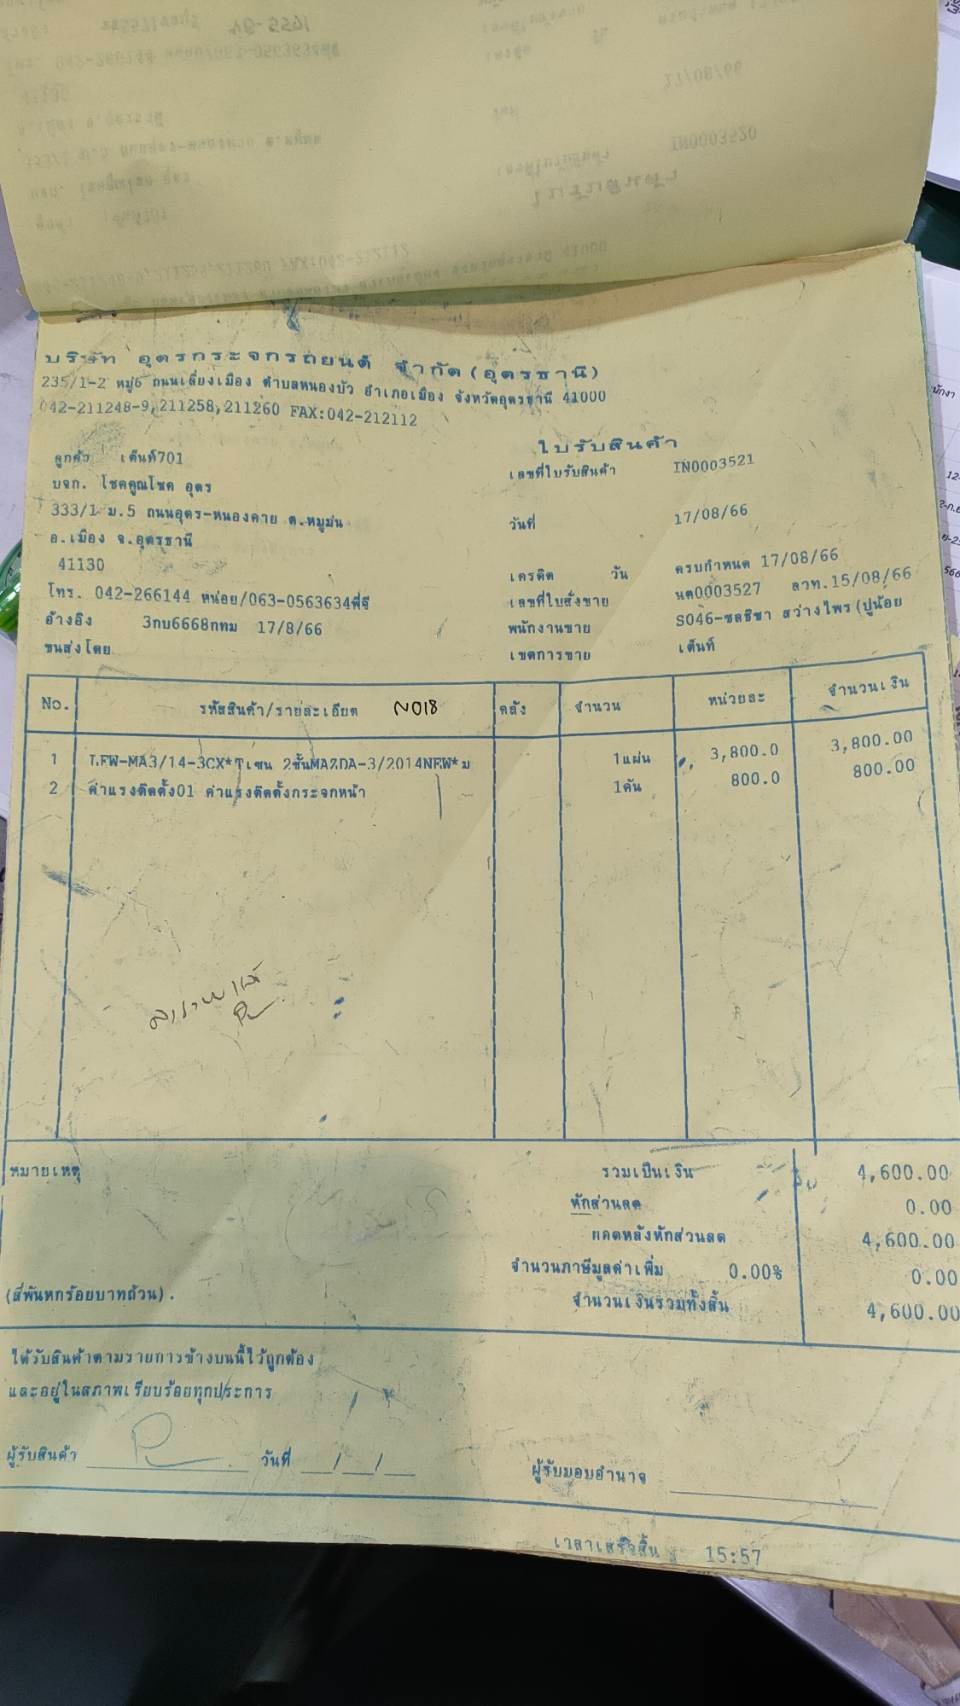 บริษัท อุดรกระจกรถยนต์ จำกัด(อุดรธานี)
235/1-2 หมู่6 ถนนเลี่ยงเมือง ตำบลหนองบัว อำเภอเมือง จังหวัดอุดรธานี 41000
042-211248-9,211258,211260 FAX:042-212112
ใบรับสินค้า
ลูกค้า เต็นท์701
เลขที่ใบรับสินค้า IN0003521
บจก. โชคคูณโชค อุดร
333/1 ม.5 ถนนอุดร-หนองคาย ต.หมูม่น
วันที่ 17/08/66
อ.เมือง จ.อุดรธานี
41130
เครดิต วัน ครบกำหนด 17/08/66
โทร. 042-266144 หน่อย/063-0563634พี่จี
เลขที่ใบสั่งขาย นค0003527 ลวท.15/08/66
อ้างอิง 3กบ6668กทม 17/8/66
พนักงานขาย S046-ชลธิชา สว่างไพร(ปูน้อย
ขนส่งโดย
เขตการขาย เต็นท์
No. รหัสสินค้า/รายละเอียด N018 คลัง จำนวน หน่วยละ จำนวนเงิน
1 LFW-MA3/14-3CX*TเซN 2ชั้นMAZDA-3/2014NEW*ม 1แผ่น 3,800.0 3,800.00
2 ค่าแรงติดตั้ง01 ค่าแรงติดตั้งกระจกหน้า 1คัน 800.0 800.00
หมายเหตุ
รวมเป็นเงิน 4,600.00
หักส่วนลด 0.00
ยอดหลังหักส่วนลด 4,600.00
จำนวนภาษีมูลค่าเพิ่ม 0.00% 0.00
(สี่พันหกร้อยบาทถ้วน).
จำนวนเงินรวมทั้งสิ้น 4,600.00
ได้รับสินค้าตามรายการข้างบนนี้ไว้ถูกต้อง
และอยู่ในสภาพเรียบร้อยทุกประการ
ผู้รับสินค้า วันที่ / /
ผู้รับมอบอำนาจ
เวลาเสร็จสิ้น : 15:57